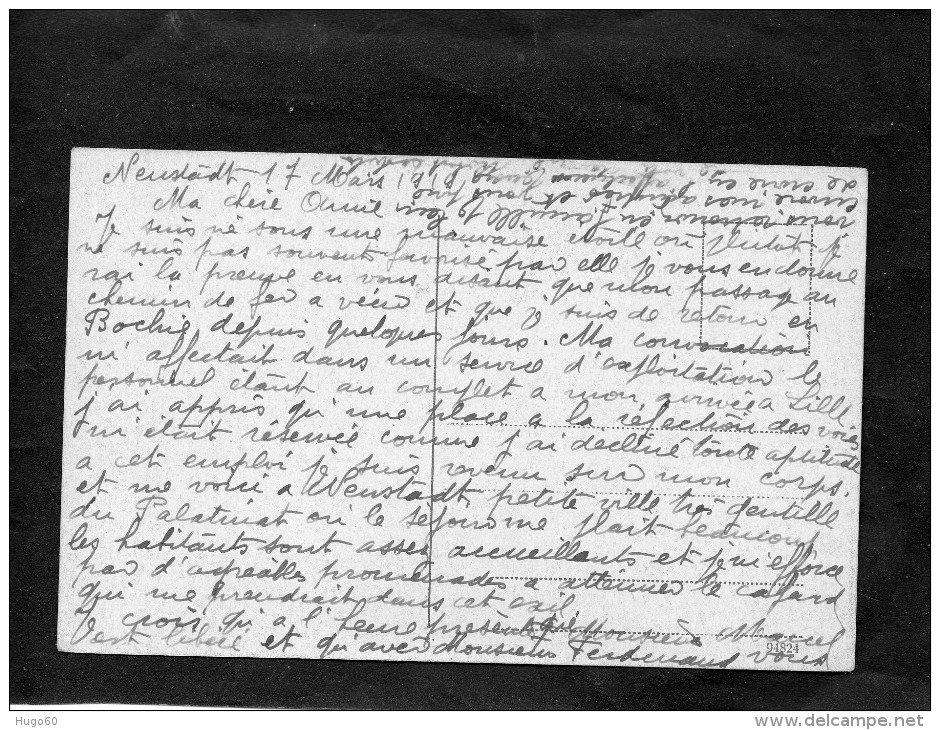 Neustadt 17 Mars 1919
Ma chère Amie
Je suis né sous une mauvaise étoile ou plutot je
ne suis pas souvent favorisé par elle je vous en donne
rai la preuve en vous disant que mon passage au
chemin de fer a vécu et que je suis de retour en
Bochie, depuis quelques jours. Ma convocation
m'affectait dans un service d'exploitation le
personnel étant au complet a mon arrivée a Lille
j'ai appris qu'une place a la réfection des voies
m'était réservée comme j'ai decliné toute aptitude
a cet emploi je suis revenu sur mon corps.
et me voici a Neustadt petite ville très gentille
du Palatinat ou le sejour me plait beaucoup
les habitants sont assez accueillants et je m'efforce
par d'agréables promenades a attenuer le cafard
qui me prendrait dans cet exil.
Je crois qu'a l'heure présente que Monsieur Marcel
est libéré et qu'avec Monsieur Ferdinand vous
94824
Hugo60
www.delcampe.net